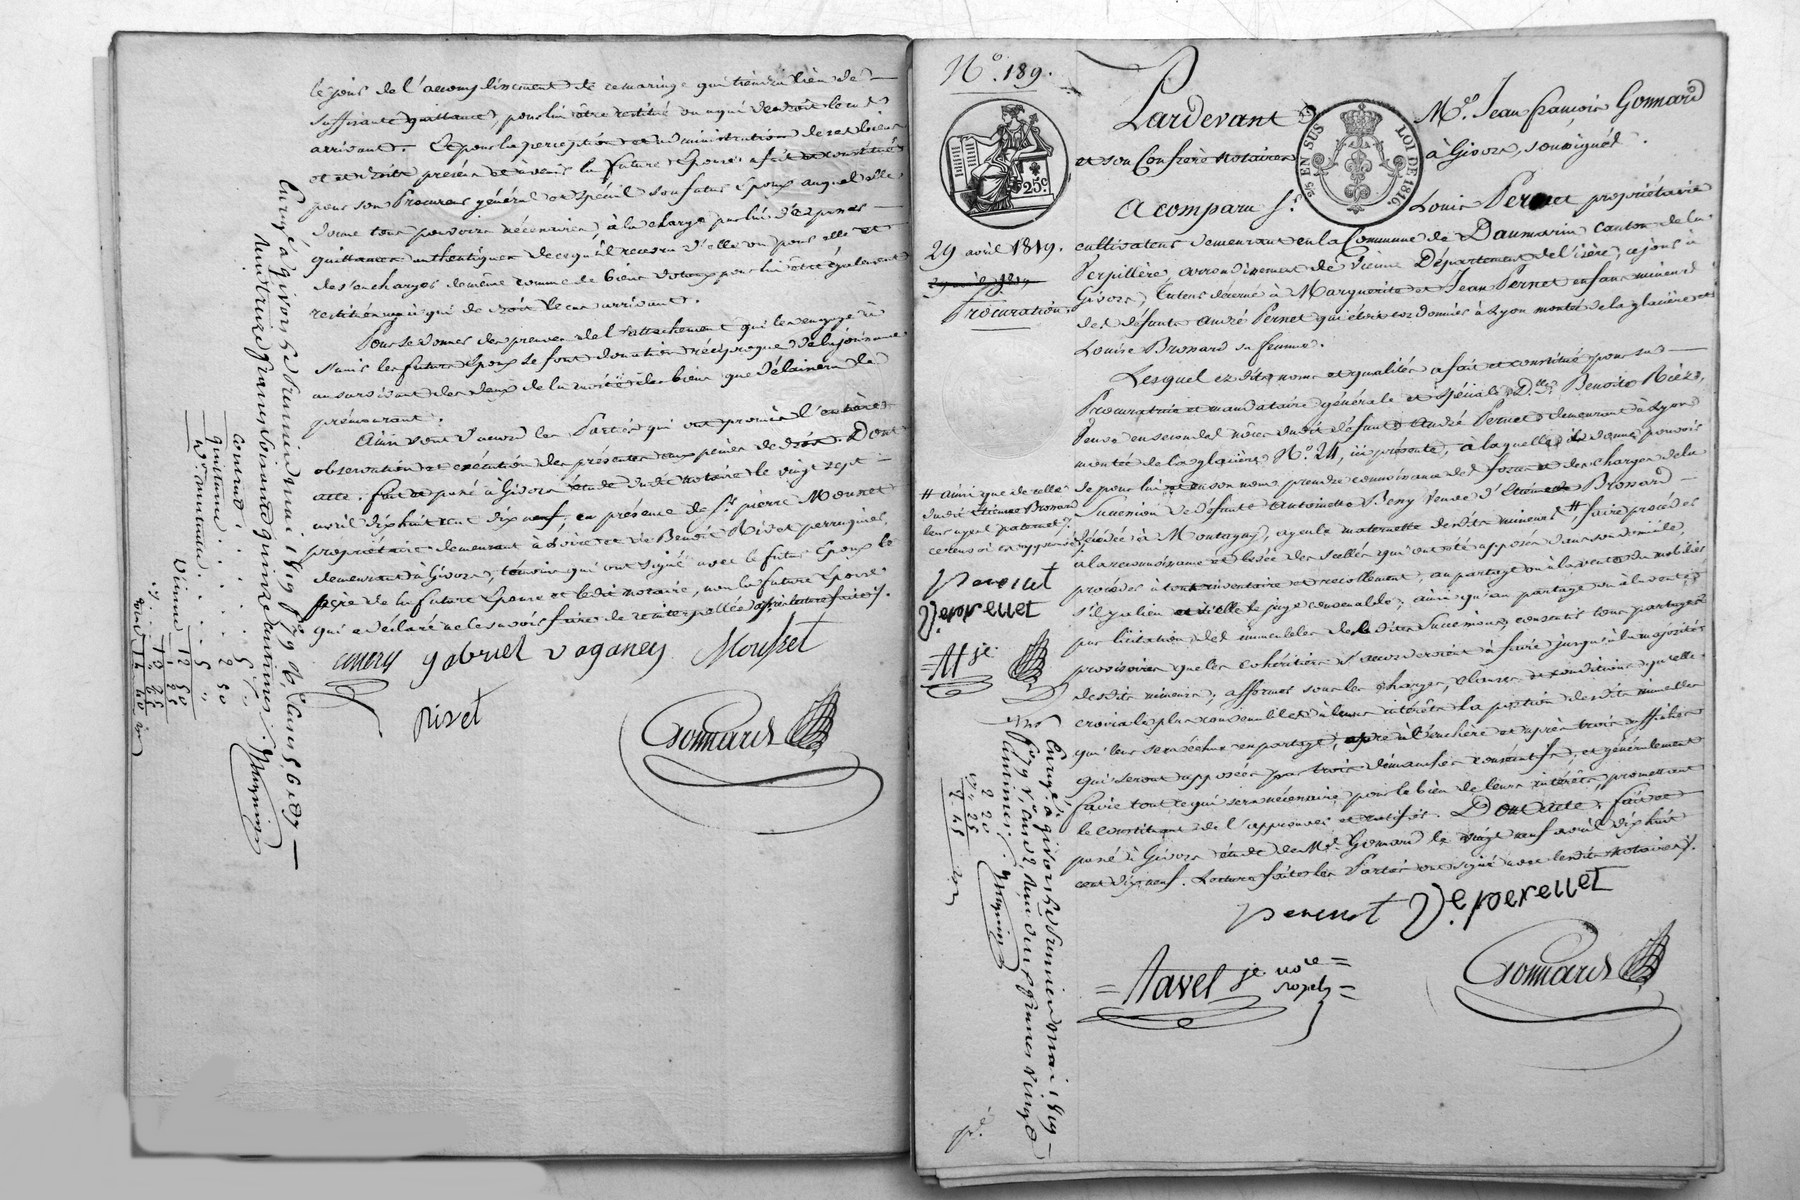 le jour de l'accomplissement de ce mariage qui tiendra lieu de
suffisante quittance, pour lui être restitué ou à qui de droit le cas
arrivant. Et pour la perception et administration de ses biens
et droits présens et à venir la future Epouse a fait et constitué
pour son Procureur général et spécial son futur Epoux auquel elle
donne tous pouvoirs nécessaires à la charge par lui d'exposer
quittances authentiques de ce qu'il recevra d'elle ou pour elle et
de s'en charger de même comme de biens dotaux pour lui être également
restitué ou à qui de droit le cas arrivant.
Pour se donner des preuves de l'attachement qui les engage à
s'unir les futurs Epoux se font donation réciproque de la jouissance
au survivant des deux de la moitié des biens que délaissera le
prémourant.
Ainsi sont d'accord les Parties qui ont promis l'entière
observation et exécution des présentes aux peines de droit. Dont
acte. fait et passé à Givors étude dudit notaire le vingt sept
avril dix huit cent dix neuf, en présence de Sr. pierre Mousset
propriétaire demeurant à Loire et de Benoit Rivet perruquier,
demeurant à Givors, témoins qui ont signé avec le futur Epoux le
père de la future Epouse et ledit notaire, non la future Epouse
qui a déclaré ne le savoir faire de ce interpellée après lecture faite.
gabriel vaganey Mousset
rivet
Gonnard
Enregé. à givors le premier mai 1819
contrat . . . 5 "
quittance . . . 2 50
N°. 189.
29 avril 1819.
Procuration
25c
25 EN SUS LOI DE 1816
Pardevant Me. Jean françois Gonnard
et son Confrère notaires à Givors, soussignés.
A comparu Sr. Louis Pernet propriétaire
cultivateur demeurant en la Commune de Daumarin canton de la
Verpillère, arrondissement de Vienne Département de l'isère, ce jour à
Givors, Tuteur décerné à Marguerite et Jean Pernet enfans mineurs
des défunts André Pernet qui étoit cordonnier à Lyon montée de la glacière et
Louise Brossard sa femme.
Lesquel ez dits noms et qualités a fait et constitué pour sa
Procuratrice et mandataire générale et spéciale De. Benoite Rieze,
Veuve en secondes nôces dudit défunt André Pernet demeurant à Lyon
montée de la glacière N°. 24, ici présente, à laquelle il donne pouvoir
de pour lui et en son nom prendre connoissance des forces et des charges de la
Succession de défunte Antoinette Beny Veuve d'Etienne Brossard
décédée à Montagny, ayeule maternelle desdits mineurs # faire procéder
à la reconnoissance et levée des scellés qui ont été apposés dans son domicile,
procéder à tout inventaire et recollement, au partage ou à la vente du mobilier
s'il y a lieu et si elle le juge convenable; ainsi qu'au partage ou à la vente
par licitation des immeubles de ladite Succession; consentir tous partages
provisoires que les cohéritiers d'iceux seroient à faire jusqu'à la majorité
desdits mineurs; affermer sous les charges, clauses et conditions qu'elle
croira le plus convenable à leurs intérêts la portion desdits immeubles
qui leur sera échue en partage, après à l'enchère et après trois affiches
qui seront apposées par trois dimanches consécutifs, et généralement
faire tout ce qui sera nécessaire pour le bien de leurs intérêts, promettant
le constituant de l'approuver et ratifier. Dont acte. fait et
passé à Givors étude de Me. Gonnard le vingt neuf avril dix huit
cent dix neuf. Lecture faite les Parties ont signé avec lesdits notaires.
# ainsi que de celle
dudit Etienne Brossard
leur ayeul paternel
pernet
Ve. pernet
Enregé. à givors le premier mai 1819
2 20
" 22
pernet Ve. pernet
Tavel je. nore. royal
Gonnard